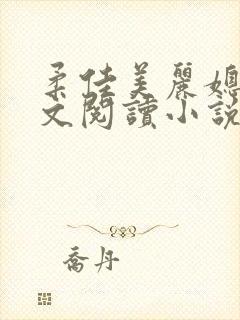 柔佳美麗媳
文閱讀小說
喬丹